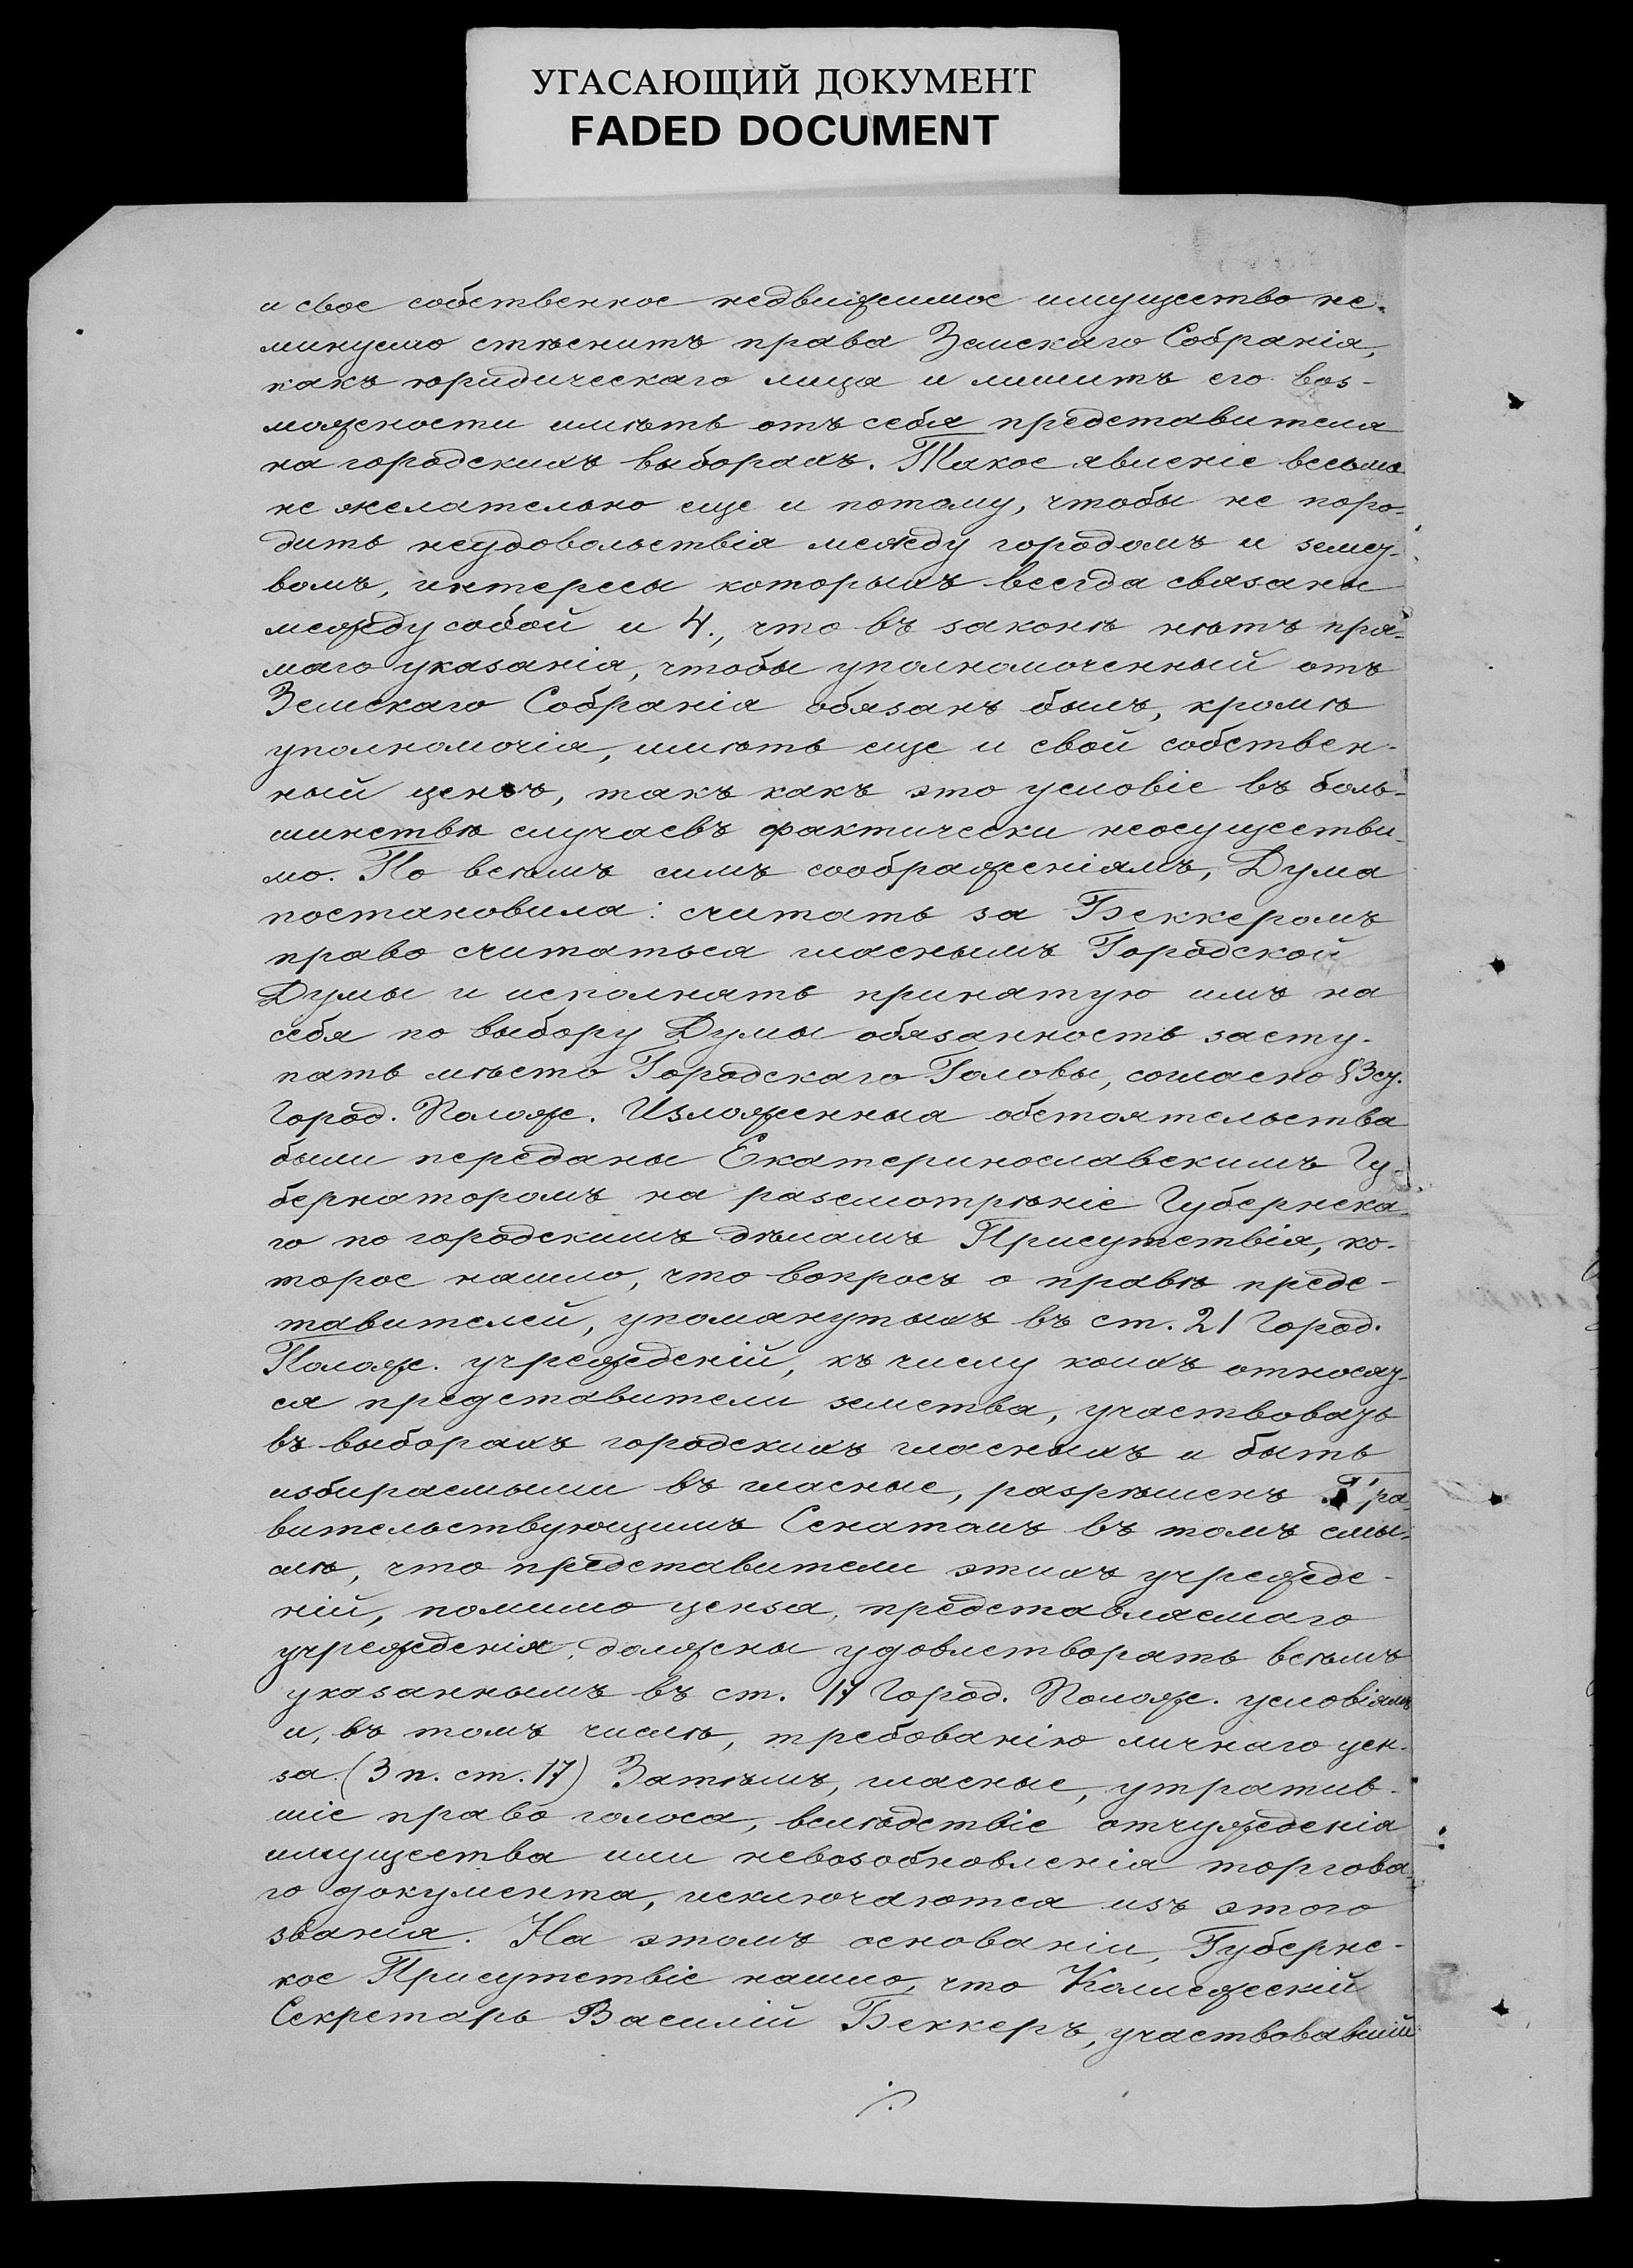 УГАСАЮЩИЙ ДОКУМЕНТ
FADED DOCUMENT
и свое собственное недвижимое имущество не-
минуемо стѣснитъ права Земскаго Собранія,
какъ юридическаго лица и лишитъ его воз-
можности имѣть отъ себя представителя
на городскихъ выборахъ. Такое явленіе весьма
не желательно еще и потому, чтобы не поро-
дить неудовольствія между городомъ и земст-
вомъ, интересы которыхъ всегда связаны
между собой и 4., что въ законѣ нѣтъ пря-
маго указанія, чтобы уполномоченный отъ
Земскаго Собранія обязанъ былъ, кромѣ
уполномочія, имѣть еще и свой собствен-
ный цензъ, такъ какъ это условіе въ боль-
шинствѣ случаевъ фактически неосуществи-
мо. По всѣмъ симъ соображеніямъ, Дума
постановила: считать за Беккеромъ
право считаться гласнымъ Городской
Думы и исполнять принятую имъ на
себя по выбору Думы обязанность засту-
пать мѣсто Городскаго Головы, согласно 83 ст.
Город. Полож. Изложенныя обстоятельства
были переданы Екатеринославскимъ Гу-
бернаторомъ на разсмотрѣніе Губернска-
го по городскимъ дѣламъ Присутствія, ко-
торое нашло, что вопросъ о правѣ предс-
тавителей, упомянутыхъ въ ст. 21 Город.
Полож. учрежденій, къ числу коихъ относят-
ся представители земства, участвовать
въ выборахъ городскихъ гласныхъ и быть
избираемыми въ гласные, разрѣшенъ Пра-
вительствующимъ Сенатомъ въ томъ смы-
слѣ, что представители этихъ учрежде-
ній, помимо ценза, представляемаго
учрежденія, должны удовлетворять всѣмъ
указаннымъ въ ст. 17 Город. Полож. условіямъ
и, въ томъ числѣ, требованію личнаго цен-
за (3 п. ст. 17) Затѣмъ, гласные, утратив-
шіе право голоса, вслѣдствіе отчужденія
имущества или невозобновленія торгова-
го документа, исключаются изъ этого
званія. На этомъ основаніи, Губернс-
кое Присутствіе нашло, что Коллежскій
Секретарь Василій Беккеръ, участвовавшій